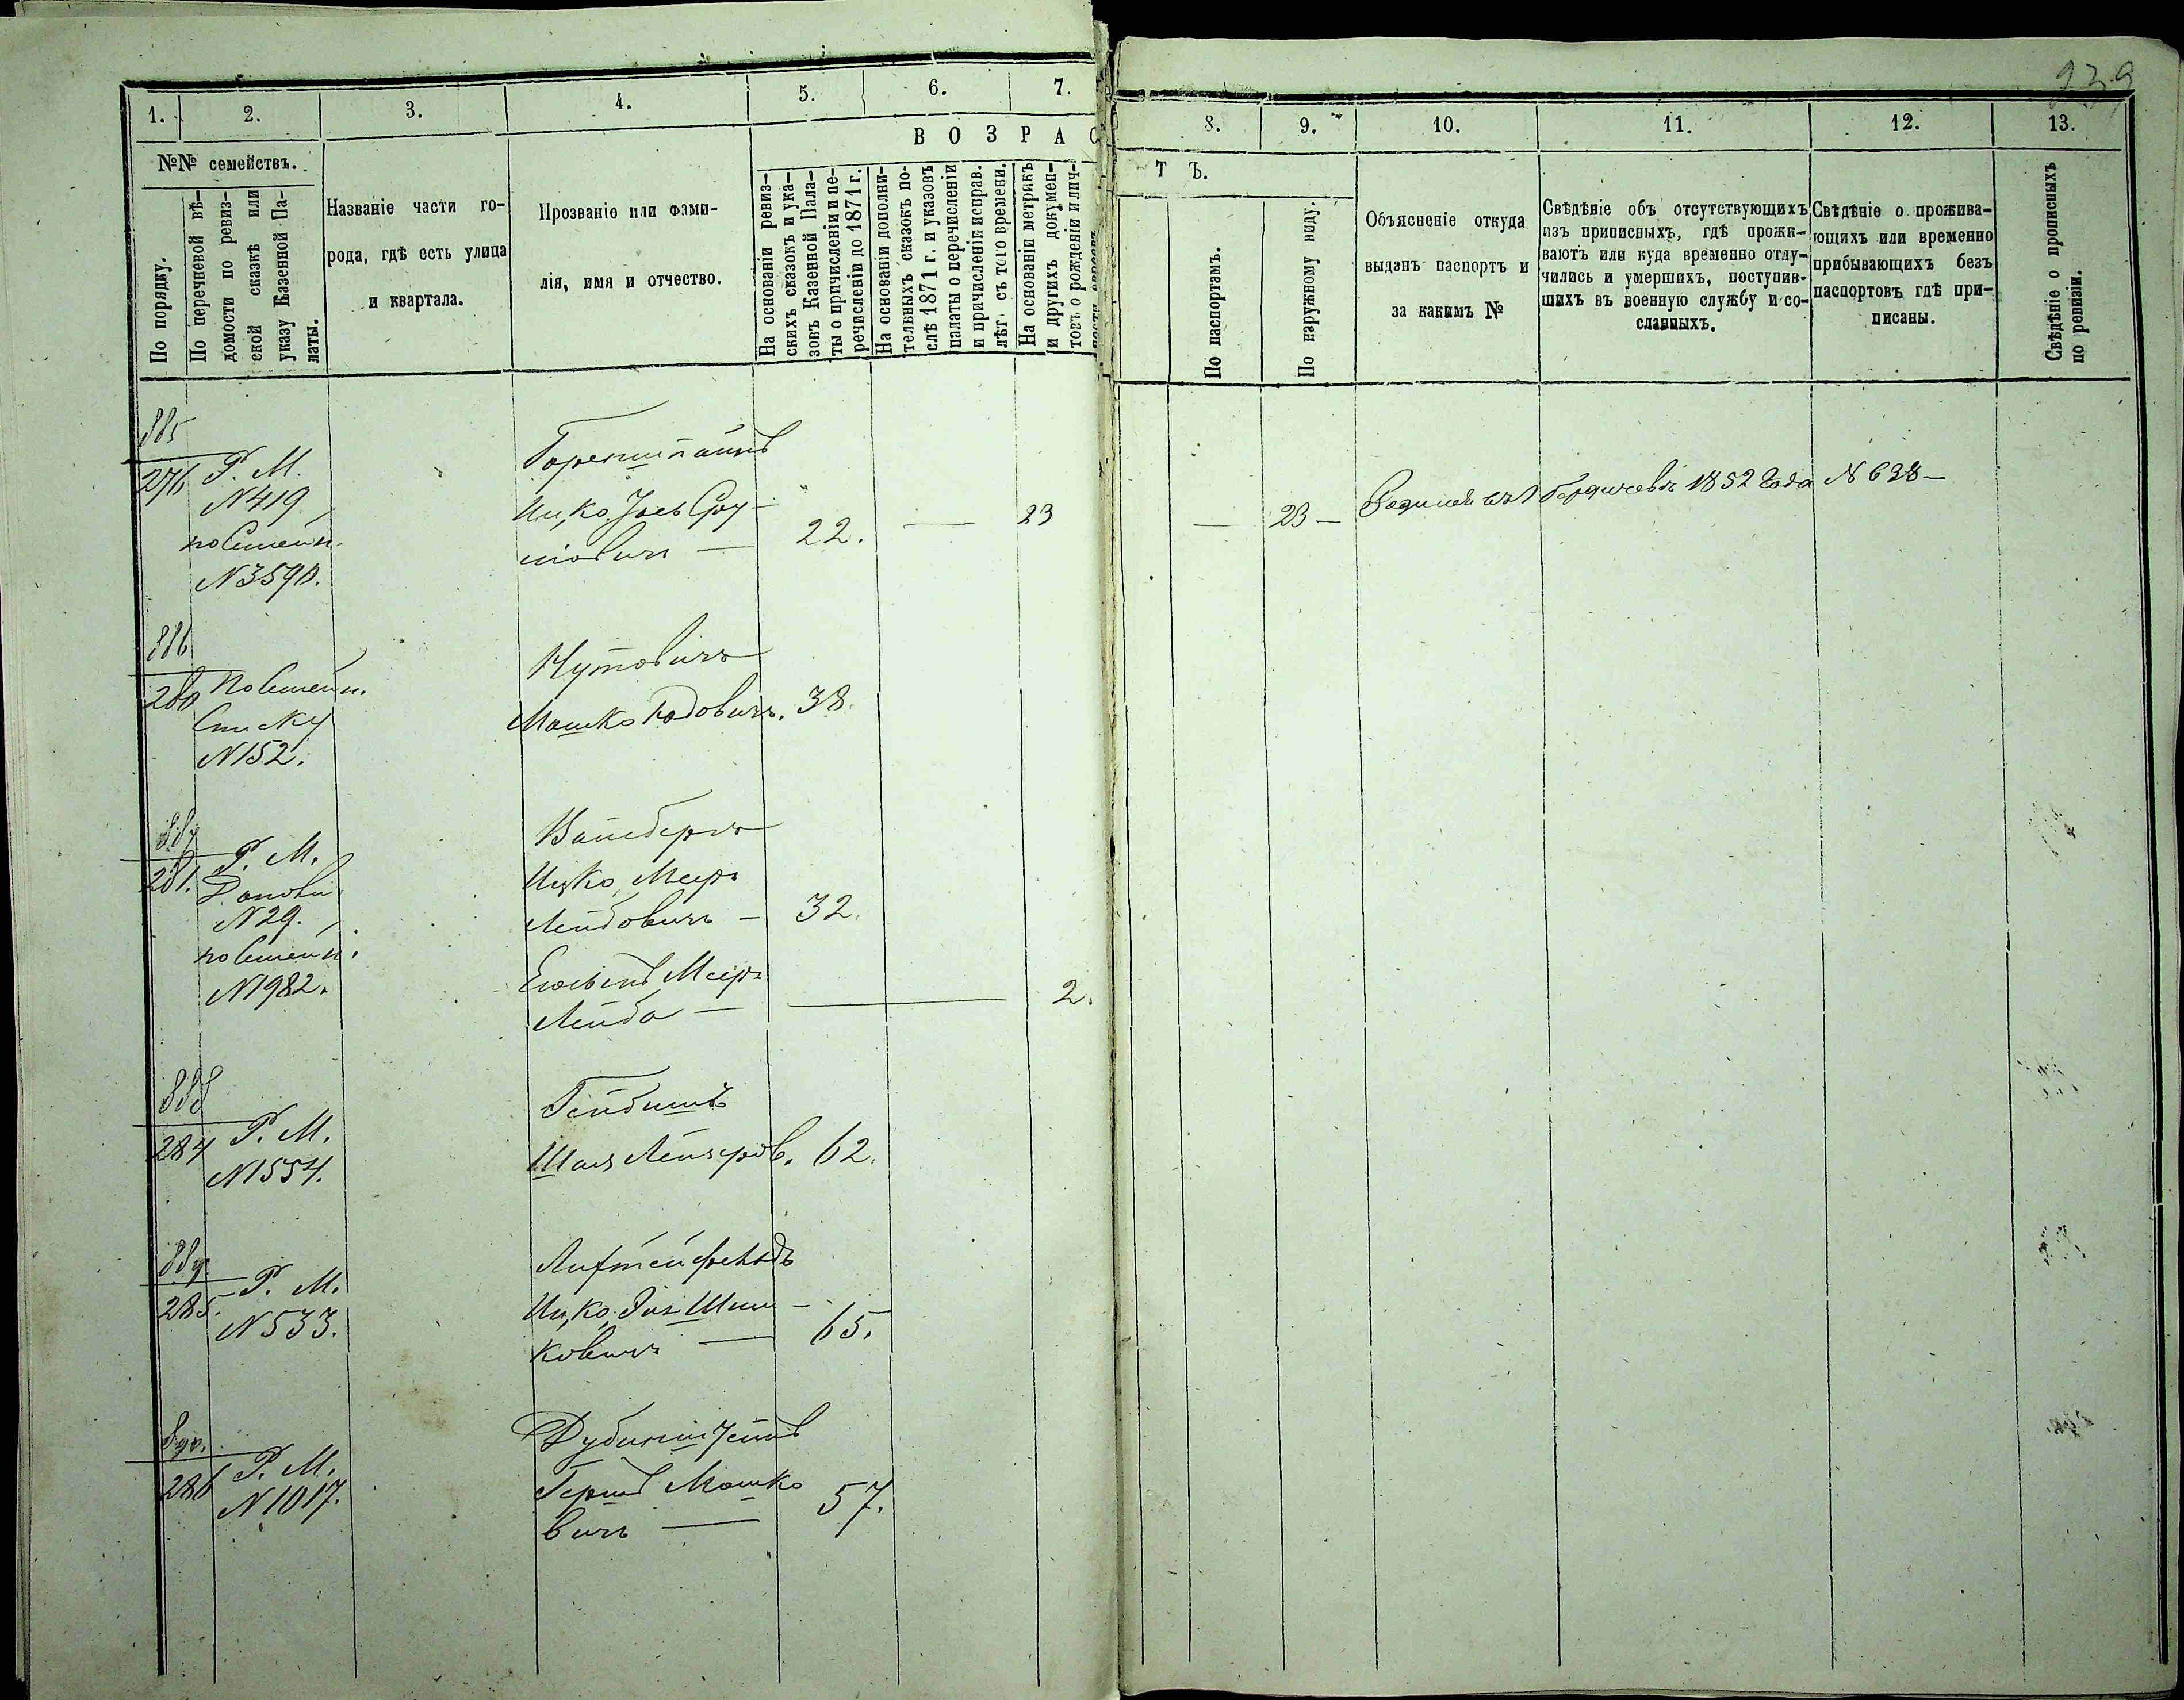 239
1. 2. 3. 4. 5. 6. 7. 8. 9. 10. 11. 12. 13.
В О З Р А С Т Ъ.
№№ семействъ.
По порядку.
По перечневой вѣ-
домости по ревиз-
ской сказкѣ или
указу Казенной Па-
латы.
Названіе части го-
рода, гдѣ есть улица
и квартала.
Прозваніе или фами-
лія, имя и отчество.
На основаніи ревиз-
скихъ сказокъ и ука-
зовъ Казенной Пала-
ты о причисленіи и пе-
речисленіи до 1871 г.
На основаніи дополни-
тельныхъ сказокъ по-
слѣ 1871 г. и указовъ
палаты о перечисленіи
и причисленіи исправ.
лѣт. съ того времени.
На основаніи метрикъ
и другихъ докумен-
товъ о рожденіи и лич-
По паспортамъ.
По наружному виду.
Объясненіе откуда
выданъ паспортъ и
за какимъ №
Свѣдѣніе объ отсутствующихъ
изъ приписныхъ, гдѣ прожи-
ваютъ или куда временно отлу-
чились и умершихъ, поступив-
шихъ въ военную службу и со-
сланныхъ.
Свѣдѣніе о прожива-
ющихъ или временно
прибывающихъ безъ
паспортовъ гдѣ при-
писаны.
Свѣдѣніе о прописныхъ
по ревизіи.
885
276 Р. М.
N 419
по Семейн.
N 3590.
Ицко Іось Сру-
22. — 23 — 23 —
1852 года N 638 —
886
280 По Семейн.
Списку
N 152.
Нутовичъ
Мошко Юдовичъ. 38.
887
281. Р. М.
N 29.
по Семейн.
N 1982.
Вайсбергъ
Ицко Меер
Лейбовичъ — 32.
Меер
Лейба — 2.
888
284 Р. М.
N 1554.
Гейбишъ
Шая Лейзеров. 62.
889
285. Р. М.
N 533.
Ицко Шим-
ковичъ — 65.
890.
286 Р. М.
N 1017.
Рубинштейнъ
Гершъ Мошко
вичъ — 57.